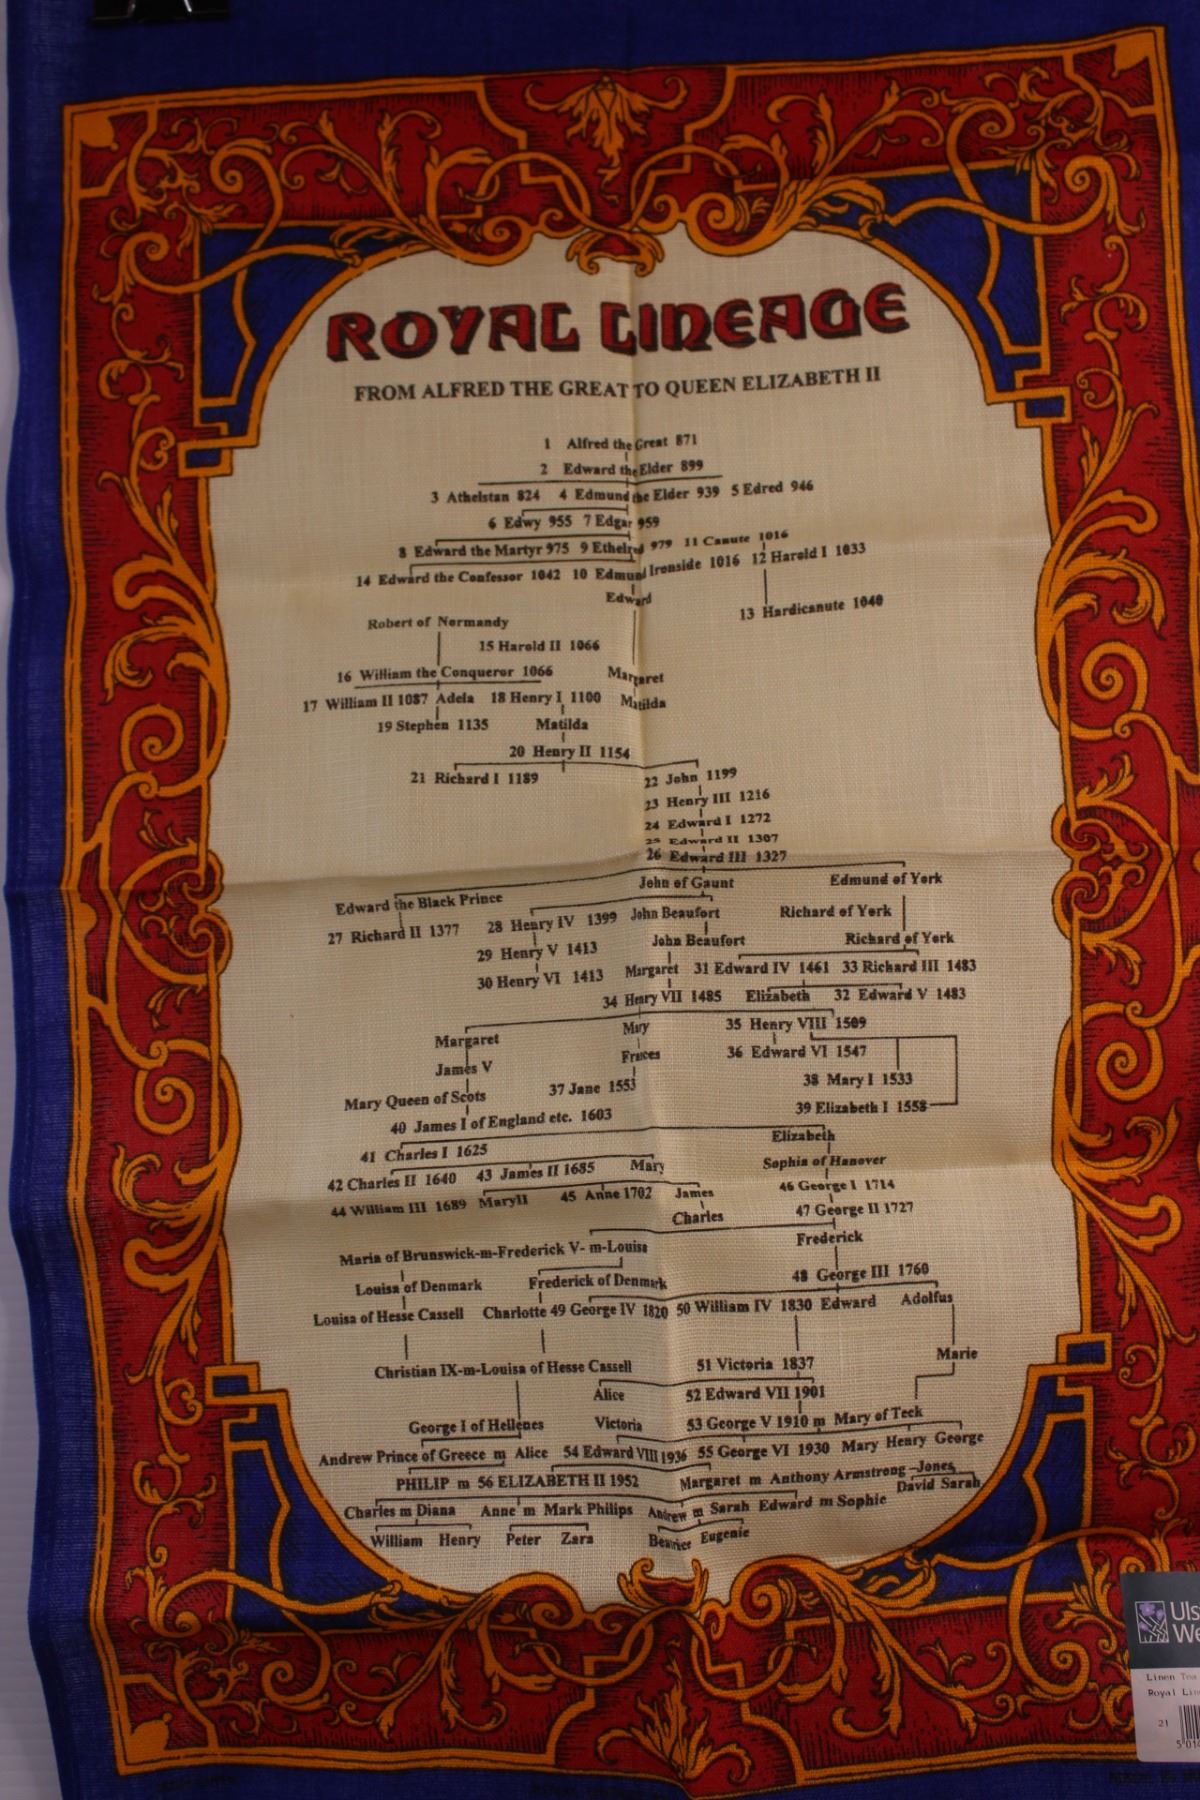 ROYAL LINEAGE
FROM ALFRED THE GREAT TO QUEEN ELIZABETH II
1 Alfred the Great 871
2 Edward the Elder 899
3 Athelstan 824 4 Edmund the Elder 939 5 Edred 946
6 Edwy 955 7 Edgar 959
8 Edward the Martyr 975 9 Ethelred 979 11 Canute 1016
14 Edward the Confessor 1042 10 Edmund Ironside 1016 12 Harold I 1033
Edward
13 Hardicanute 1040
Robert of Normandy
15 Harold II 1066
16 William the Conqueror 1066 Margaret
17 William II 1087 Adela 18 Henry I 1100 Matilda
19 Stephen 1135 Matilda
20 Henry II 1154
21 Richard I 1189 22 John 1199
23 Henry III 1216
24 Edward I 1272
25 Edward II 1307
26 Edward III 1327
Edward the Black Prince John of Gaunt Edmund of York
27 Richard II 1377 28 Henry IV 1399 John Beaufort Richard of York
29 Henry V 1413 John Beaufort Richard of York
30 Henry VI 1413 Margaret 31 Edward IV 1461 33 Richard III 1483
34 Henry VII 1485 Elizabeth 32 Edward V 1483
Margaret Mary 35 Henry VIII 1509
James V Frances 36 Edward VI 1547
Mary Queen of Scots 37 Jane 1553 38 Mary I 1533
40 James I of England etc. 1603 39 Elizabeth I 1558
41 Charles I 1625 Elizabeth
42 Charles II 1640 43 James II 1685 Mary Sophia of Hanover
44 William III 1689 MaryII 45 Anne 1702 James 46 George I 1714
Charles 47 George II 1727
Maria of Brunswick-m-Frederick V- m-Louisa Frederick
Louisa of Denmark Frederick of Denmark 48 George III 1760
Louisa of Hesse Cassell Charlotte 49 George IV 1820 50 William IV 1830 Edward Adolfus
Christian IX-m-Louisa of Hesse Cassell 51 Victoria 1837 Marie
Alice 52 Edward VII 1901
George I of Hellenes Victoria 53 George V 1910 m Mary of Teck
Andrew Prince of Greece m Alice 54 Edward VIII 1936 55 George VI 1930 Mary Henry George
PHILIP m 56 ELIZABETH II 1952 Margaret m Anthony Armstrong -Jones
David Sarah
Charles m Diana Anne m Mark Philips Andrew m Sarah Edward m Sophie
William Henry Peter Zara Beatrice Eugenie
Linen Tea
Royal
21